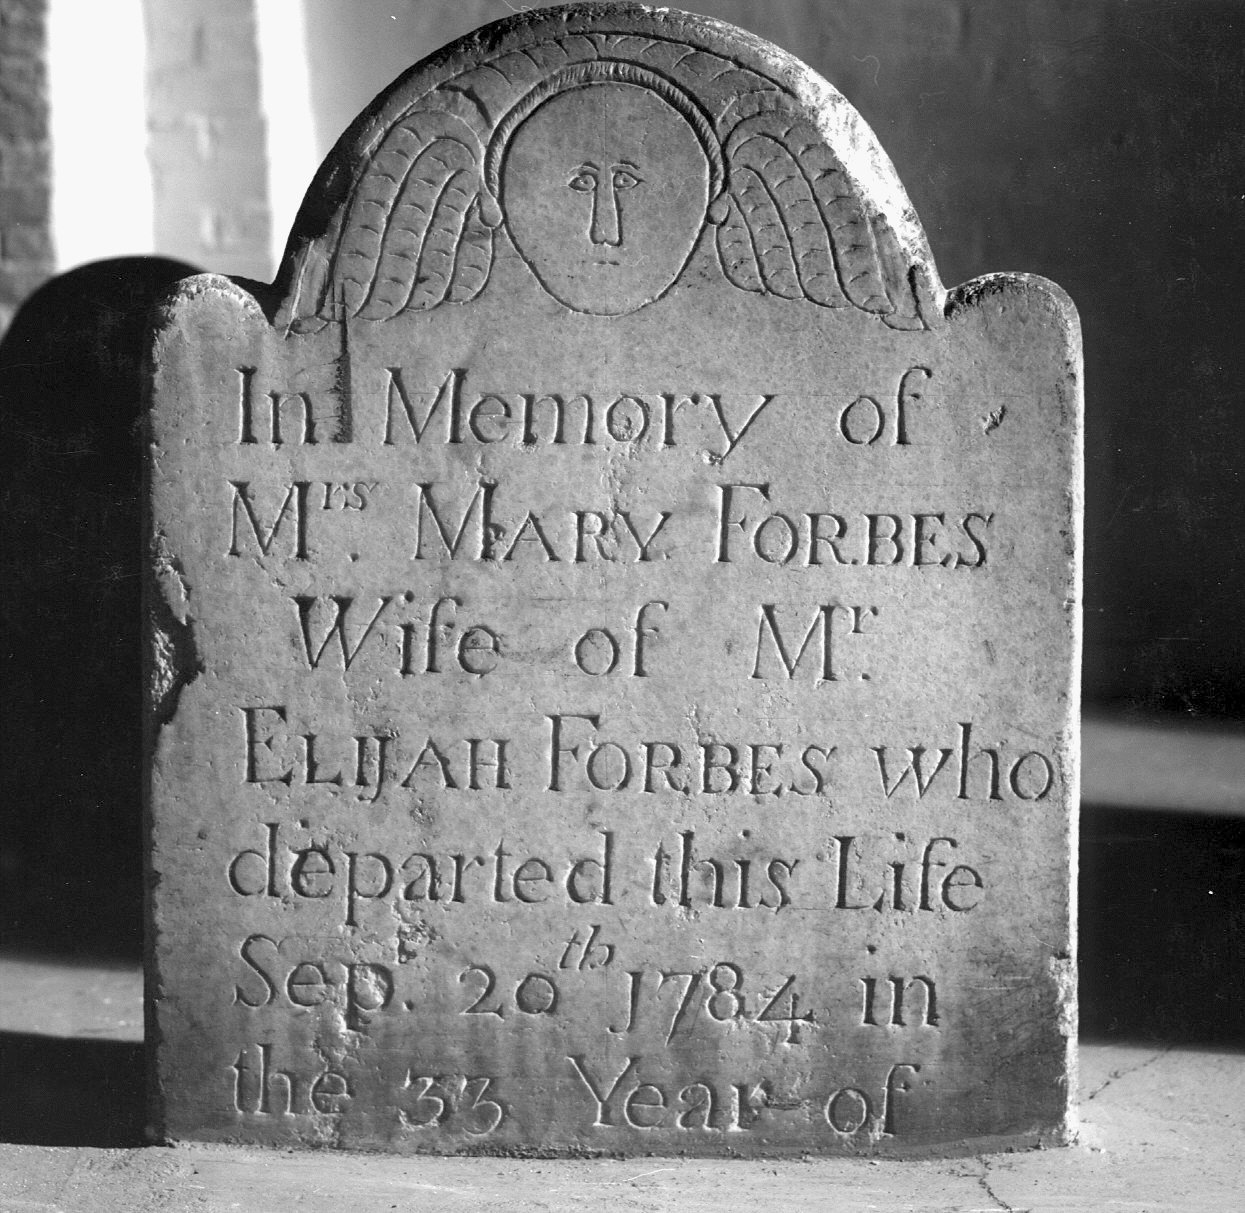 In Memory of
Mrs. MARY FORBES
Wife of Mr.
ELIJAH FORBES who
departed this Life
Sep. 20th 1784 in
the 33 Year of